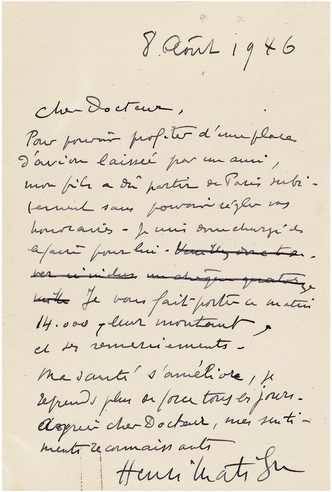 8 Août 1946
Cher Docteur,
Pour pouvoir profiter d'une place
d'avion laissée par un ami,
mon fils a dû partir de Paris subi-
tement sans pouvoir régler vos
honoraires - Je suis donc chargé de
le faire pour lui - Veuillez donc trou-
ver ci inclus un chèque quatorze
mille Je vous fait porter ce matin
14.000, leur montant,
et ses remerciements -
Ma santé s'améliore, je
reprends plus de force tous les jours -
Agréez cher Docteur, mes senti-
ments reconnaissants
Henri Matisse